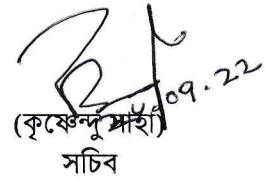 09.22
(কৃষ্ণেন্দু সাহা)
সচিব